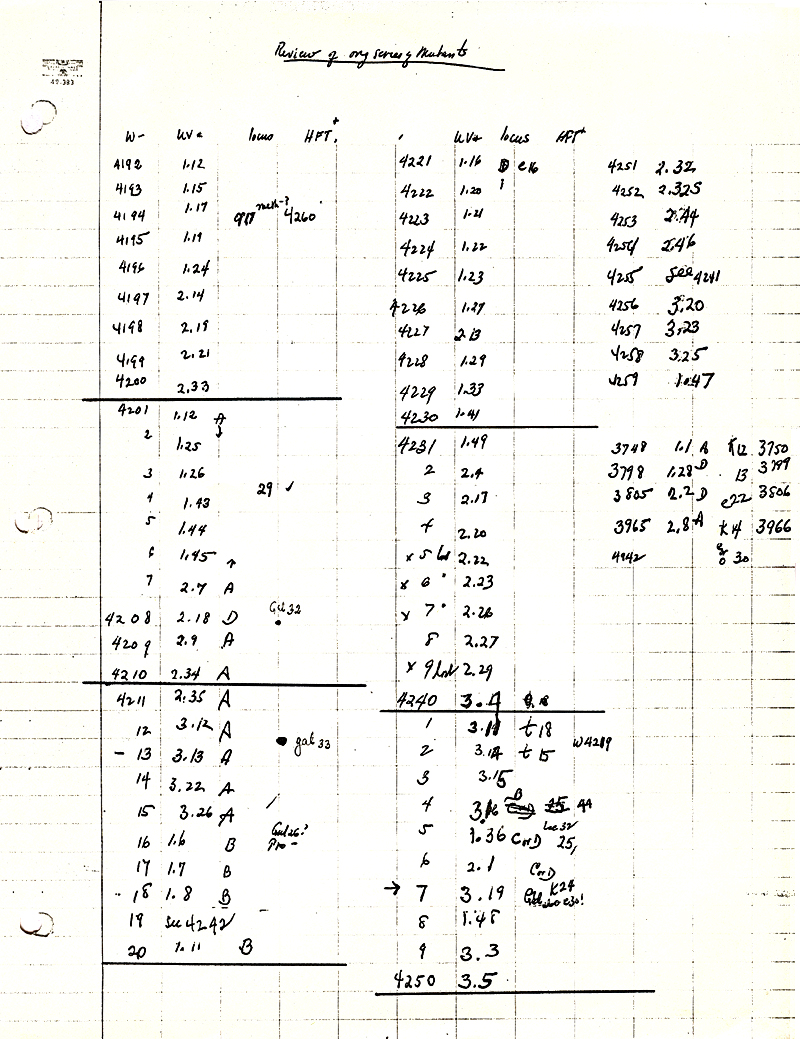 Review of org series of Mutants
49.383
W- UV← locus HFT+
4192 1.12
4193 1.15
4194 1.17 meth-? 4260
4195 1.19
4196 1.24
4197 2.14
4198 2.19
4199 2.21
4200 2.33
4201 1.12 A
2 1.25 ↓
3 1.26
4 1.43 29 ✓
5 1.44
6 1.45 ↑
7 2.7 A
4208 2.18 D Gal 32
4209 2.9 A
4210 2.34 A
4211 2.35 A
12 3.12 A
- 13 3.13 A gal 33
14 3.22 A
15 3.26 A
16 1.6 B Gal 26? Pro -
17 1.7 B
18 1.8 B
19 see 4242
20 1.11 B
UV← locus HFT+
4221 1.16 D e16
4222 1.20
4223 1.21
4224 1.22
4225 1.23
4226 1.27
4227 2.13
4228 1.29
4229 1.33
4230 1.41
4231 1.49
2 2.4
3 2.17
4 2.20
x 5 lost 2.22
x 6 " 2.23
x 7 " 2.26
8 2.27
x 9 lost 2.29
4240 3.4 18
1 3.11 t 18
2 3.14 t 15 W4219
3 3.15
4 3.16 B 44
5 1.36 C or D Lac 32 25,
6 2.1 C or D
→ 7 3.19 K24 also e30!
8 1.48
9 3.3
4250 3.5
4251 2.32
4252 2.325
4253 2.44
4254 2.46
4255 see 4241
4256 3.20
4257 3.23
4258 3.25
4259 1.47
3748 1.1 A K12 3750
3798 1.28 D 13 3799
3805 2.2 D e22 3806
3965 2.8 A K14 3966
4942 30